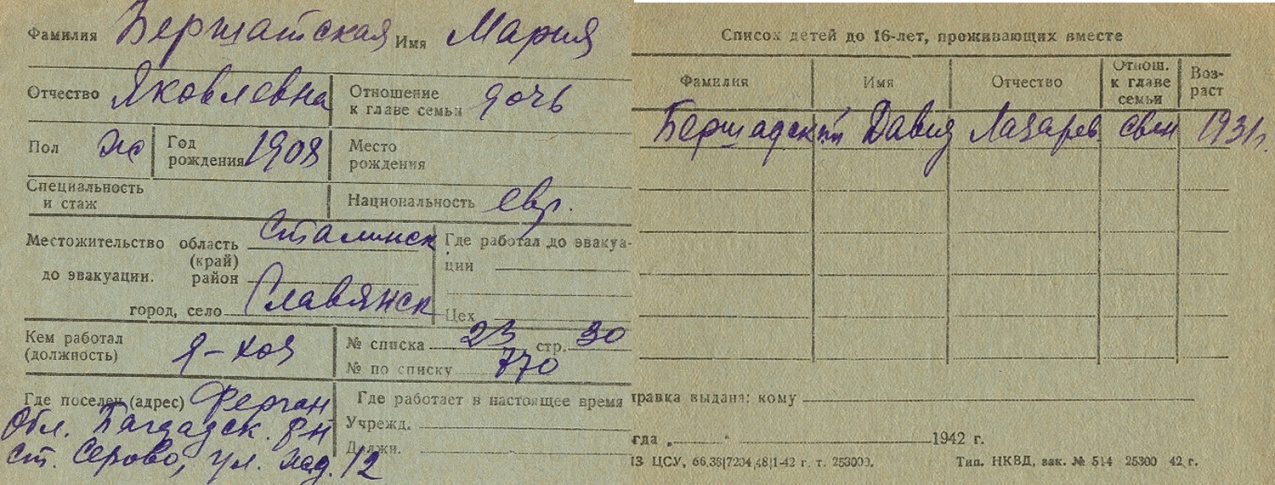 Фамилия Бершатская Имя Мария
Отчество Яковлевна Отношение к главе семьи дочь
Пол ж Год рождения 1908 Место рождения
Специальность и стаж Национальность евр.
Местожительство до эвакуации. область (край) Сталинск
район
город, село Славянск
Где работал до эвакуации
Цех
Кем работал (должность) д-хоз
№ списка 23 стр. 30
№ по списку 770
Где поселен (адрес) Ферган
Обл. Багдадск. рн
ст. Серово, ул. 12
Где работает в настоящее время
Учрежд.
Должн.
Список детей до 16-лет, проживающих вместе
Фамилия Имя Отчество Отнош. к главе семьи Возраст
Бершадский Давид Лазарев 1931г.
равка выдана: кому
гда „ “ 1942 г.
ИЗ ЦСУ, 66,38|7204,48|1-42 г. т. 253000. Тип. НКВД, зак. № 514 25300 42 г.